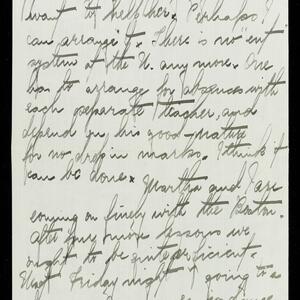 want to help her! Perhaps I
can arrange it. There is no "cut"
system at the U. any more. One
has to arrange for absences with
each separate teacher, and
depend on his good-nature
for no drop in marks. I think it
can be done. Martha and I are
coming on finely with the
After four more lessons we
ought to be quite proficient.
Friday night I going to a